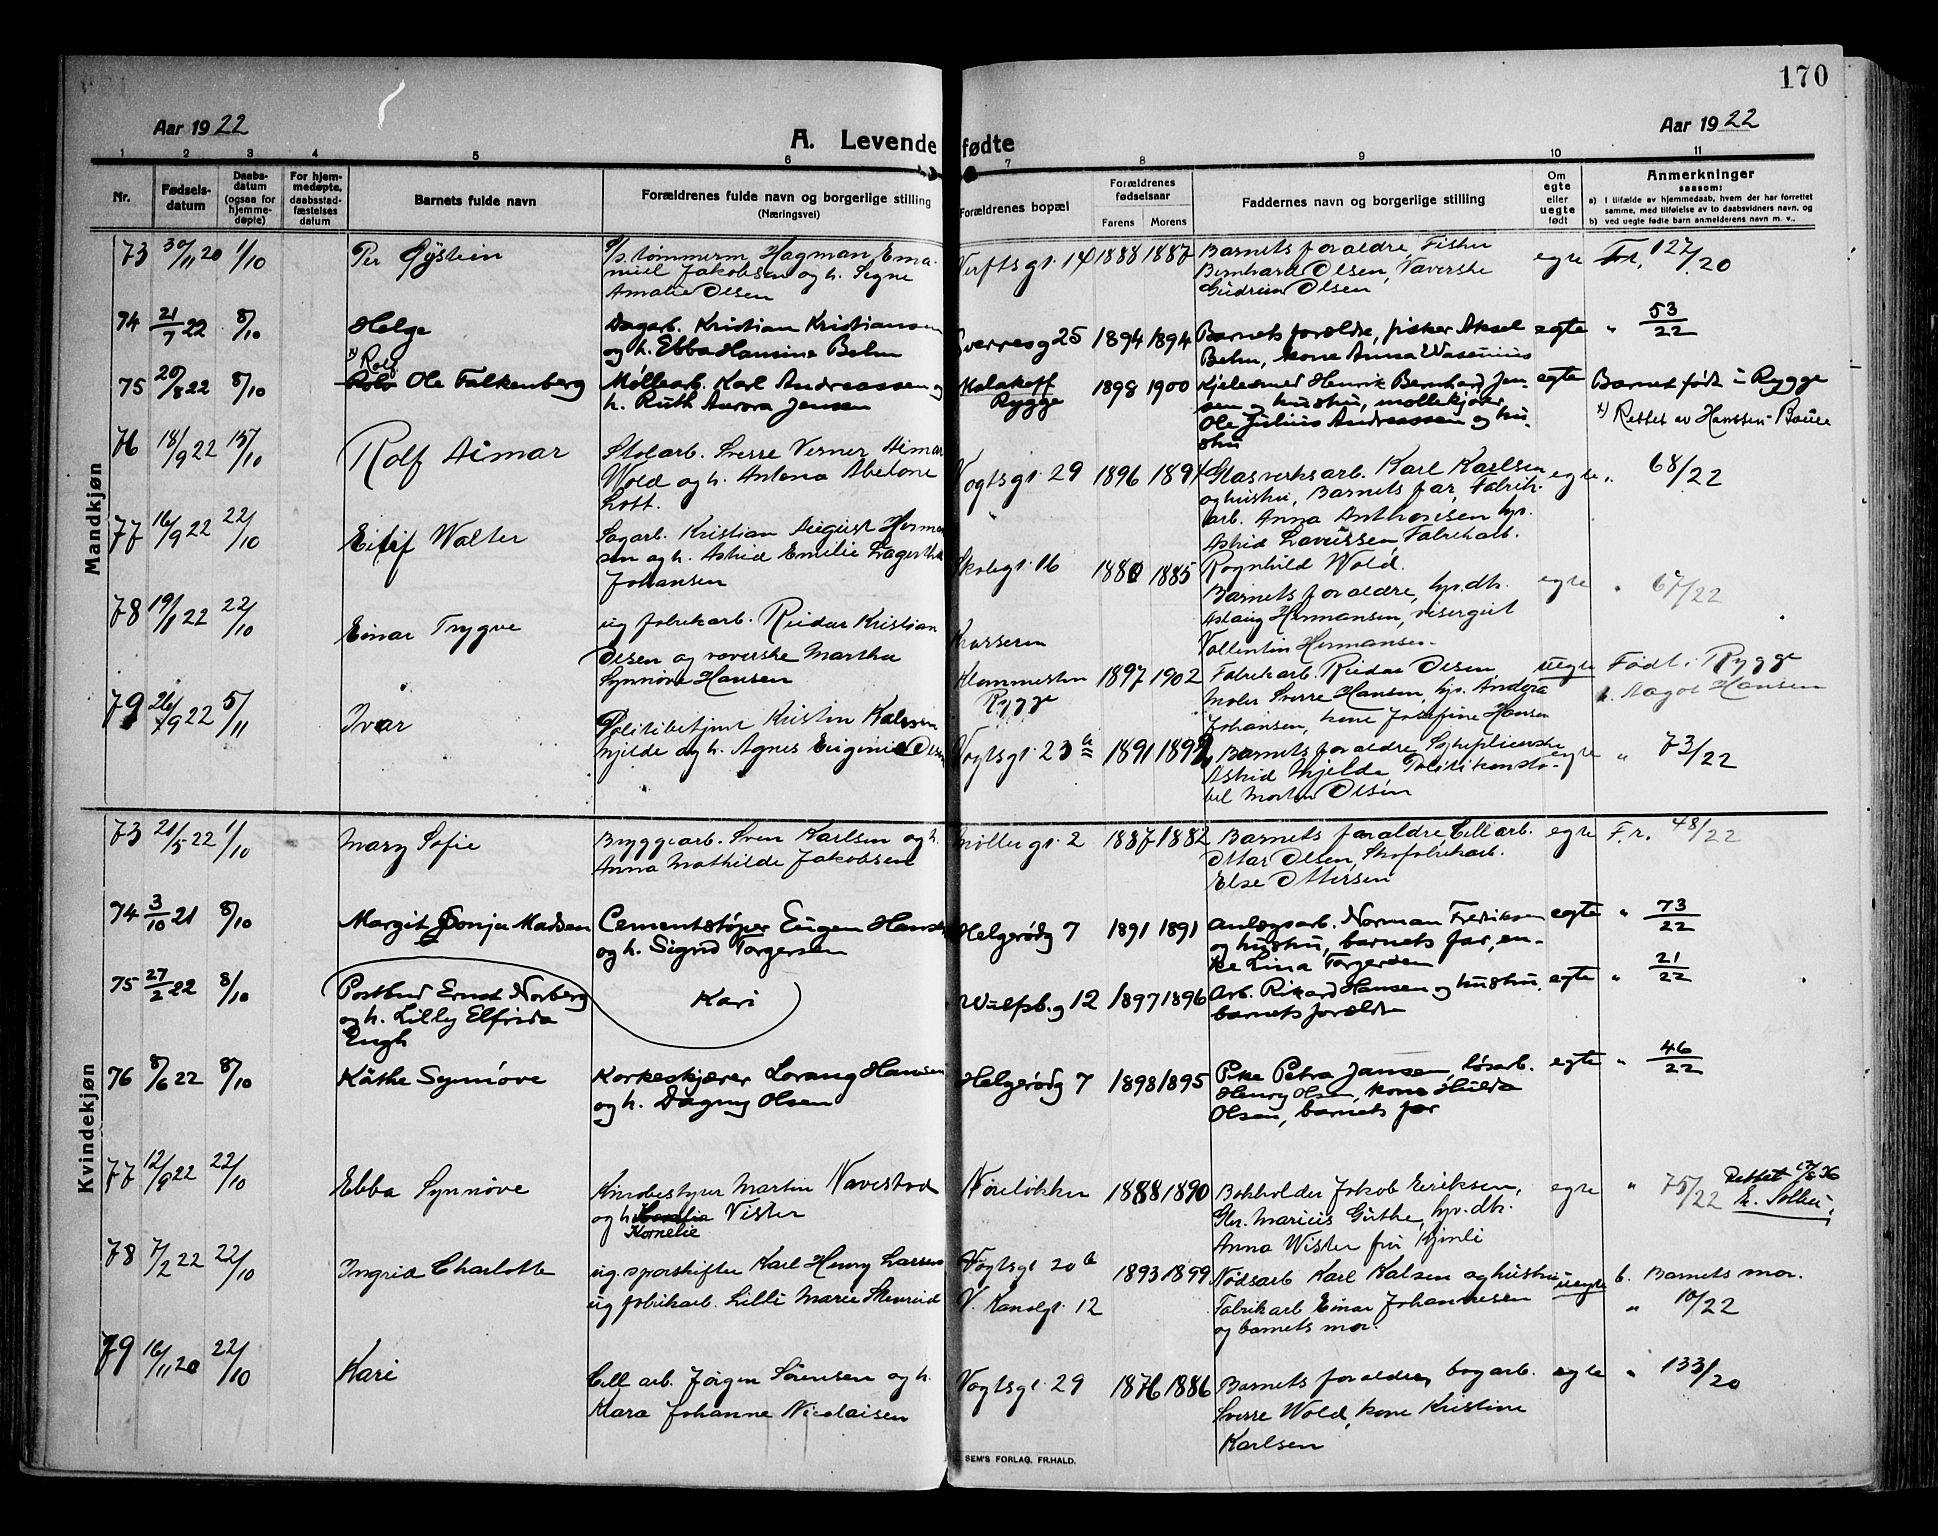 170
Aar 1922
A. Levende fødte
Aar 1922
1 2 3 4 5 6 7 8 9 10 11
Nr.
Fødsels-
datum
Daabs-
datum
(ogsaa for
hjemme-
døpte)
For hjem-
medøpte,
daabsstad-
fæstelses
datum
Barnets fulde navn
Forældrenes fulde navn og borgerlige stilling
(Næringsvei)
Forældrenes bopæl
Forældrenes
fødselsaar
Farens Morens
Faddernes navn og borgerlige stilling
Om
egte
eller
uegte
født
Anmerkninger
saasom:
a) I tilfælde av hjemmedaab, hvem der har forrettet
samme, med tilføielse av to daabsvidners navn, og
b) ved uegte fødte barn anmelderens navn m. v.
Mandkjøn
73 30/11 20 1/10 Per Øystein
tømmerm. Hagman Ema-
nuel Jakobsen og h. Signe
Amalie Olsen
Verftsgt. 14 1888 1887
Barnets foraldre, Fisker
Bernhard Olsen, Væverske
Gudrun Olsen
egte Fr. 127/20
74 21/7 22 8/10 Helge
Dagarb. Kristian Kristiansen
og h. Ebba Hansine Behn
Sverresg 25 1894 1894
Barnets forældre, fisker Aksel
Behn, kone Anna Wasenius
egte " 53/22
75 20/8 22 8/10 x) Rolf
Rolv Ole Falkenberg
Møllearb. Karl Andreassen og
h. Ruth Aurora Jensen
Malakoff
Rygge
1898 1900
Kjelesmed Henrik Bernhard Jen-
sen og hustru, møllekjører
Ole Julius Andreassen og hu-
stru
egte Barnet født i Rygge
x) Rettet av Hanssen-Bauer
76 18/9 22 15/10 Rolf Aimar
Stolarb. Sverre Verner Aimar
Wold og h. Antona Abelone
Lott.
Vogtsgt. 29 1896 1894
Glasverksarb. Karl Karlsen
og hustru, Barnets far, Fabrik-
arb. Anna Anthonisen hp.
Astrid Lauritssen Fabrikarb.
Ragnhild Wold.
egte " 68/22
77 16/9 22 22/10 Eilif Walter
Sagarb. Kristian August Herman
sen og h. Astrid Emilie
Johansen
Skolegt. 16 1880 1885
Barnets foraldre, hp. dtr.
Aslaug Hermansen, visergut
Vallentin Hermansen.
egte " 67/22
78 19/1 22 22/10 Einar Trygve
ug fabrikarb. Reidar Kristian
Olsen og væverske Martha
Synnøve Hansen
Krosseren
Klommesten
Rygge
1897 1902
Fabrikarb. Reidar Olsen
Maler Sverre Hansen, hp. Andora
Johansen, kone Josefine Hansen
uegte Født i Rygge
b. Aagot Hansen
79 26/9 22 5/11 Ivar
Politibetjent Kristen Kalsen
Mjelde og h. Agnes Eugenie Olsen
Vogtsgt. 23 b 1891 1899
Barnets foraldre, Sykepleierske
Astrid Mjelde, Politikonsta-
bel Morten Olsen
egte " 73/22
Kvindekjøn
73 20/5 22 1/10 Mary Sofie
Bryggearb. Sven Karlsen og h.
Anna Mathilde Jakobsen
Møllergt. 2 1887 1882
Barnets foraldre, Cell arb.
Ottar Olsen, Skofabrikarb.
Else Ottersen
egte Fr. 48/22
74 3/10 21 8/10 Margit Sonja Madsen
Cementstøper Eugen Hansen
og h. Signd Torgersen
Helgerødg 7 1891 1891
Anlegsarb. Norman Fredriksen
og hustru, barnets far, en-
ke Lina Torgersen
egte " 73/22
75 27/2 22 8/10 Postbud Ernst Norberg
og h. Lilly Elfrida
Engh
Kari
Wulfsb.g 12 1897 1896
Arb. Rikard Hansen og hustru,
barnets forældre
egte " 21/22
76 8/6 22 8/10 Käthe Synnöve
Korkeskjærer Lorang Hansen
og h. Dagny Olsen
Helgerødg 7 1898 1895
Pke Petra Jansen, løsarb.
Henry Olsen, kone Hulda
Olsen, barnets far
egte " 46/22
77 12/9 22 22/10 Ebba Synnøve
Kinobestyrer Martin Navestad
og h. Vister
Kornelie
Nøreløkken 1888 1890
Bokholder Jakob Eriksen,
Gbr. Marius Guthe, hp. dtr.
Anna Wister fru Kjenli
egte " 75/22 Rettet
78 7/2 22 22/10 Ingrid Charlotte
ug. sporskifter Karl Henry Larsen
ug fabrikarb. Lilli Marie Stenrød
Vogtsgt 20 b
V. Kanalgt. 12
1893 1899
Nødsarb Karl Kalsen og hustru
Fabrikarb Einar Johannesen
og barnets mor.
uegte b. Barnets mor.
" 10/22
79 16/11 20 22/10 Kari
Cell arb. Jørgen Sørensen og h.
Klara Johanne Nicolaisen
Vogtsgt. 29 1876 1886
Barnets foraldre, bogarb.
Sverre Wold, kone Kristine
Karlsen
egte " 133/20
SEM'S FORLAG, FR.HALD.